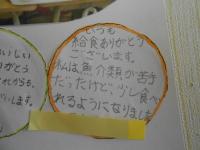 おいしい
がとう
これからも、
します。
いつも
給食ありがとう
ございます。
私は、魚介類が苦手
だったけど、少し食べ
れるようになりました